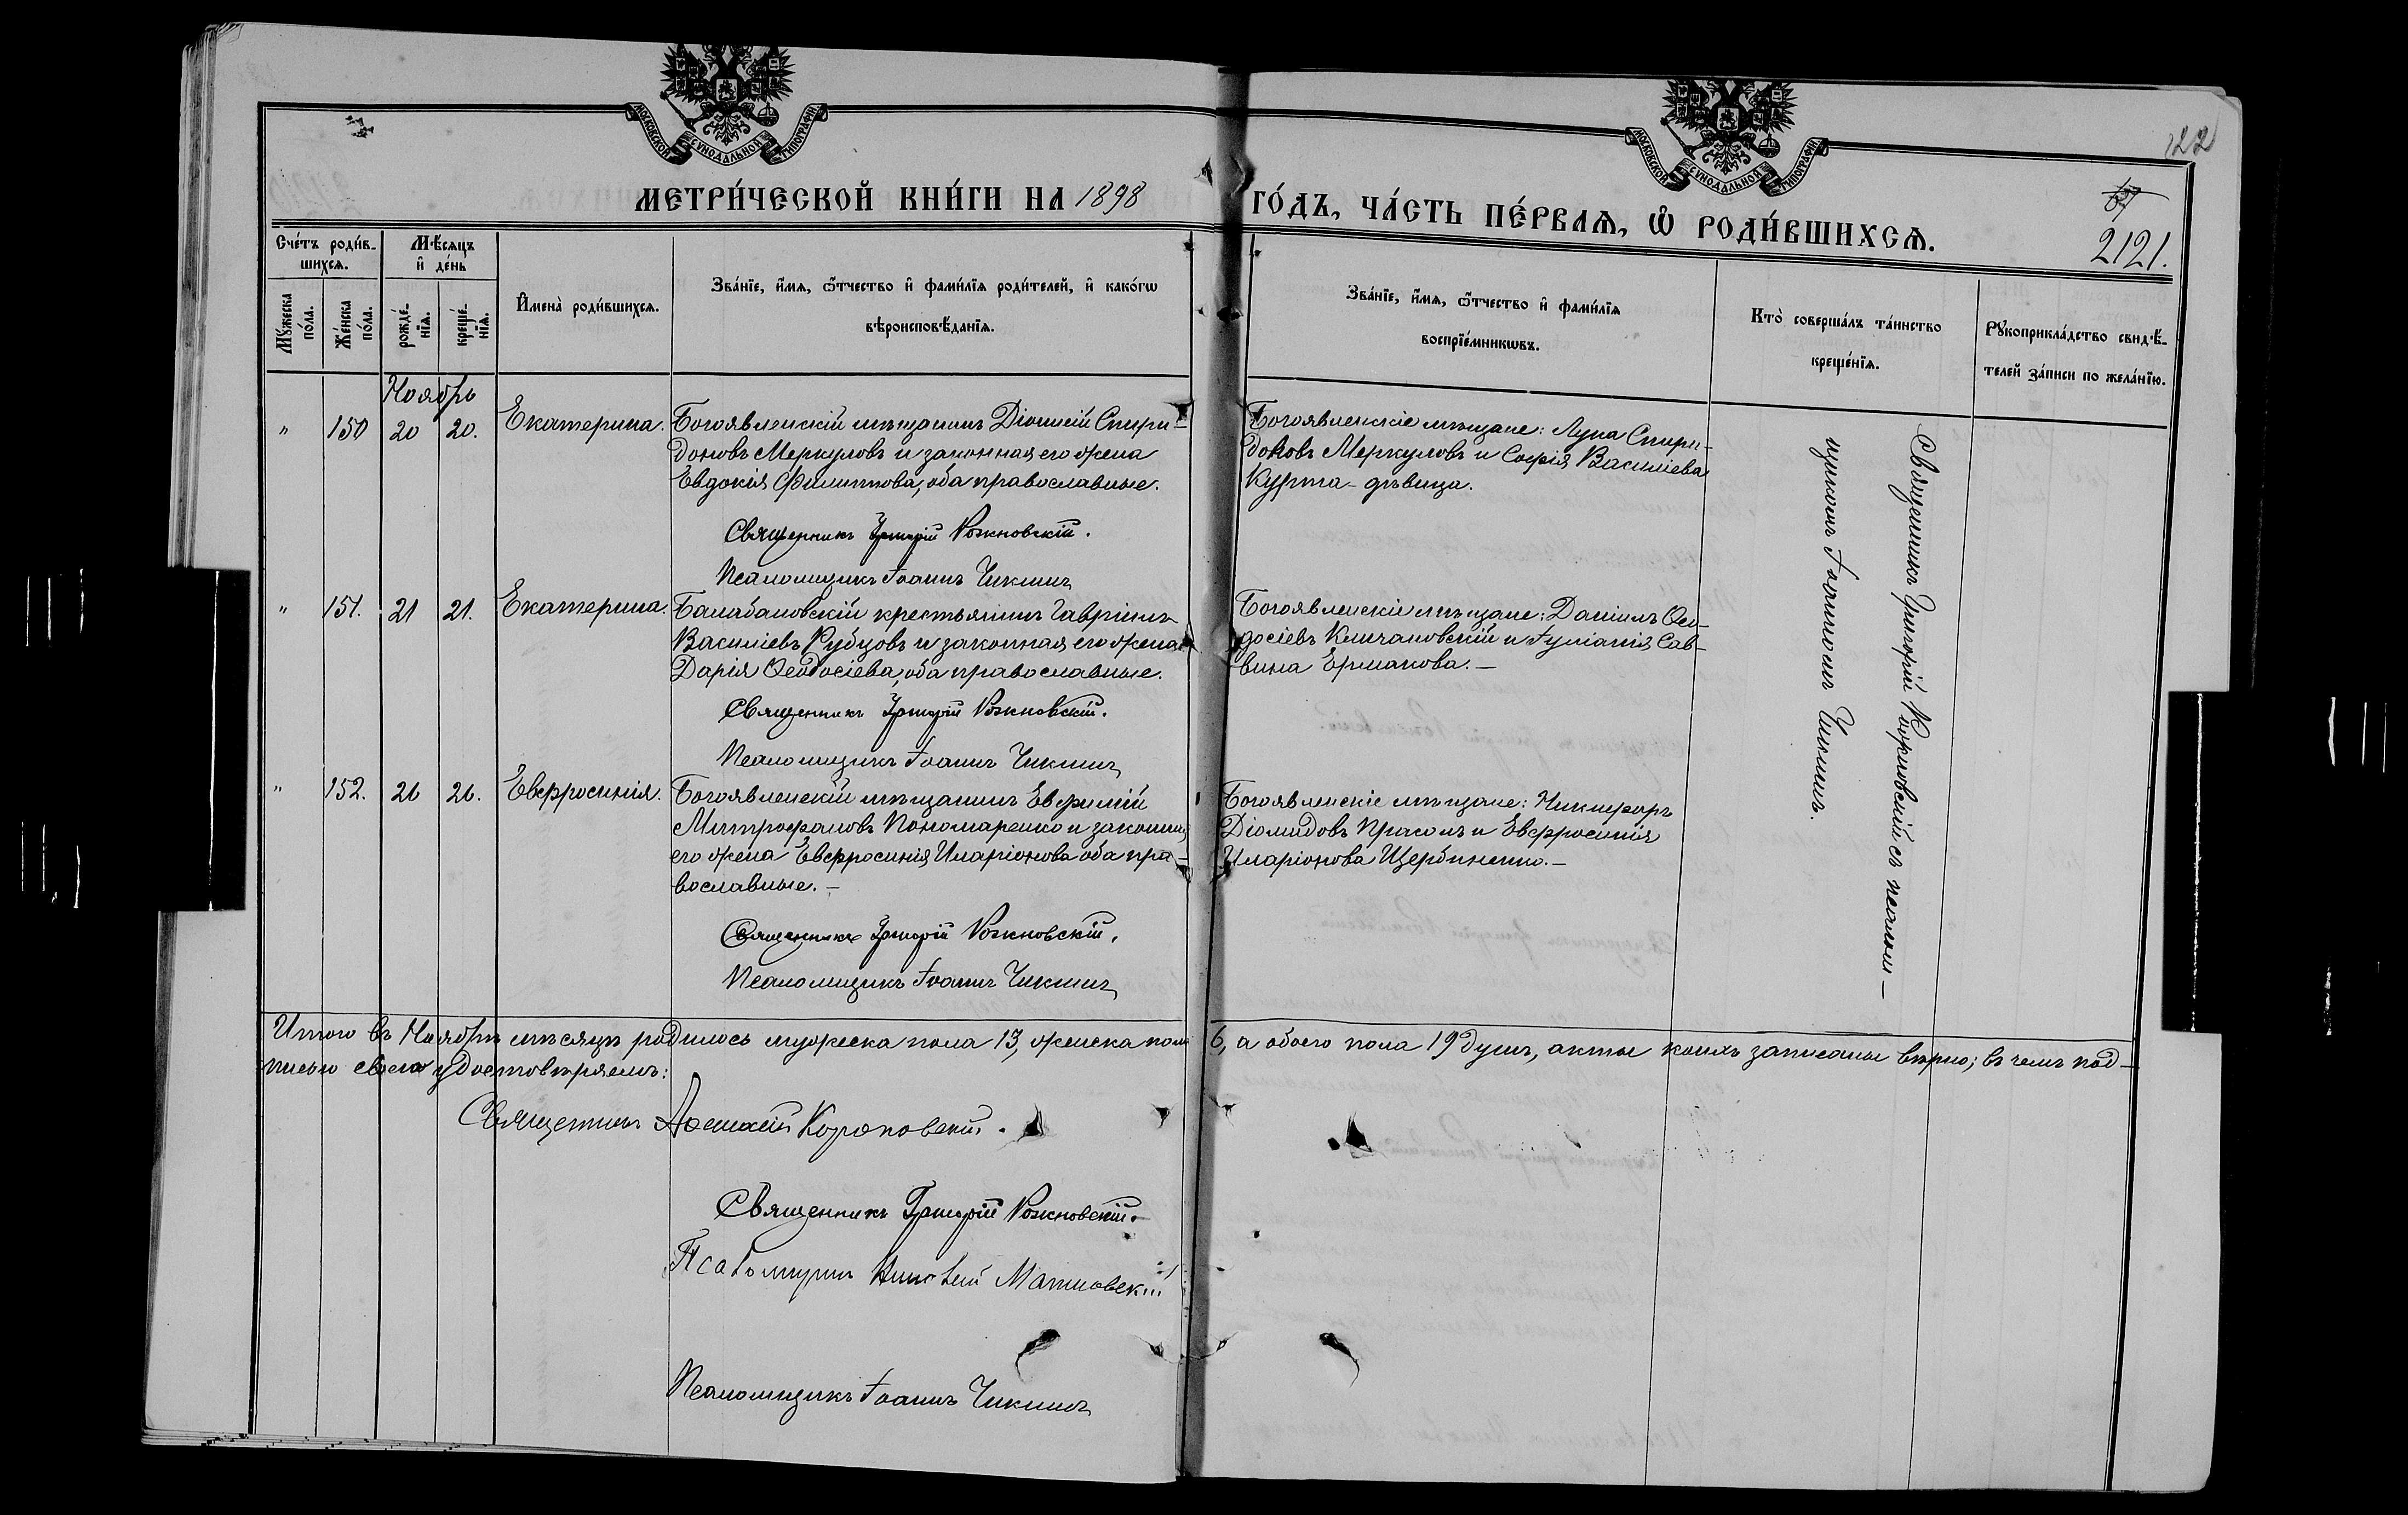 МОСКОВСКОЙ СУНОДАЛЬНОЙ ТИПОГРАФІИ
МОСКОВСКОЙ СУНОДАЛЬНОЙ ТИПОГРАФІИ
122
МЕТРИ́ЧЕСКОЙ КНИ́ГИ НА 1898
ГО́ДЪ, ЧА́СТЬ ПЕ́РВАѦ, Ѡ҆ РОДИ́ВШИХСѦ.
2121.
Сче́тъ роди́в-
шихсѧ.
Мѣ́сѧцъ
и҆ де́нь
Мꙋ́жеска
по́ла.
Же́нска
по́ла.
рожде́-
нїѧ.
креще́-
нїѧ.
И҆мена̀ роди́вшихсѧ.
Зва́нїе, и҆́мѧ, ѻ҆́тчество и҆ фами́лїѧ роди́телей, и҆ како́гѡ
вѣроисповѣ́данїѧ.
Зва́нїе, и҆́мѧ, ѻ҆́тчество и҆ фами́лїѧ
воспрїе́мникѡвъ.
Кто̀ соверша́лъ та́инство
креще́нїѧ.
Рꙋкоприкла́дство свидѣ́-
телей за́писи по жела́нїю.
Ноябрь
" 150 20 20. Екатерина.
Богоявленскій мѣщанинъ Діонисій Спири-
доновъ Меркуловъ и законная его жена
Евдокія Филиппова, оба православные.
Священникъ Григорій Рожновскій.
Псаломщикъ Іоаннъ Чикминъ
Богоявленскіе мѣщане: Лука Спири-
доновъ Меркуловъ и Софія Василіева
Курта - дѣвица.
Священникъ Григорій Рожновскій съ псалом-
щикомъ Іоанномъ Чикминъ.
" 151. 21 21. Екатерина.
Балабановскій крестьянинъ Гавріилъ
Василіевъ Рубцовъ и законная его жена
Дарія Ѳеодосіева, оба православные.
Священникъ Григорій Рожновскій.
Псаломщикъ Іоаннъ Чикминъ
Богоявленскіе мѣщане: Даніилъ Ѳео-
досіевъ Кличановскій и Іуліанія Сав-
вина Ермакова. —
" 152. 26 26. Евфросинія.
Богоявленскій мѣщанинъ Евфимій
Митрофановъ Пономаренко и законная
его жена Евфросинія Иларіонова оба пра-
вославные. —
Священникъ Григорій Рожновскій.
Псаломщикъ Іоаннъ Чикминъ
Богоявленскіе мѣщане: Никифоръ
Діомидовъ Прасолъ и Евфросинія
Иларіонова Щербиненко. —
Итого въ Ноябрѣ мѣсяцѣ родилось мужеска пола 13, женска пола 6, а обоего пола 19 душъ, акты коихъ записаны вѣрно; въ чемъ под-
писью своею удостовѣряемъ:
Священникъ Короповскій.
Священникъ Григорій Рожновскій.
Псаломщикъ
Псаломщикъ Іоаннъ Чикминъ